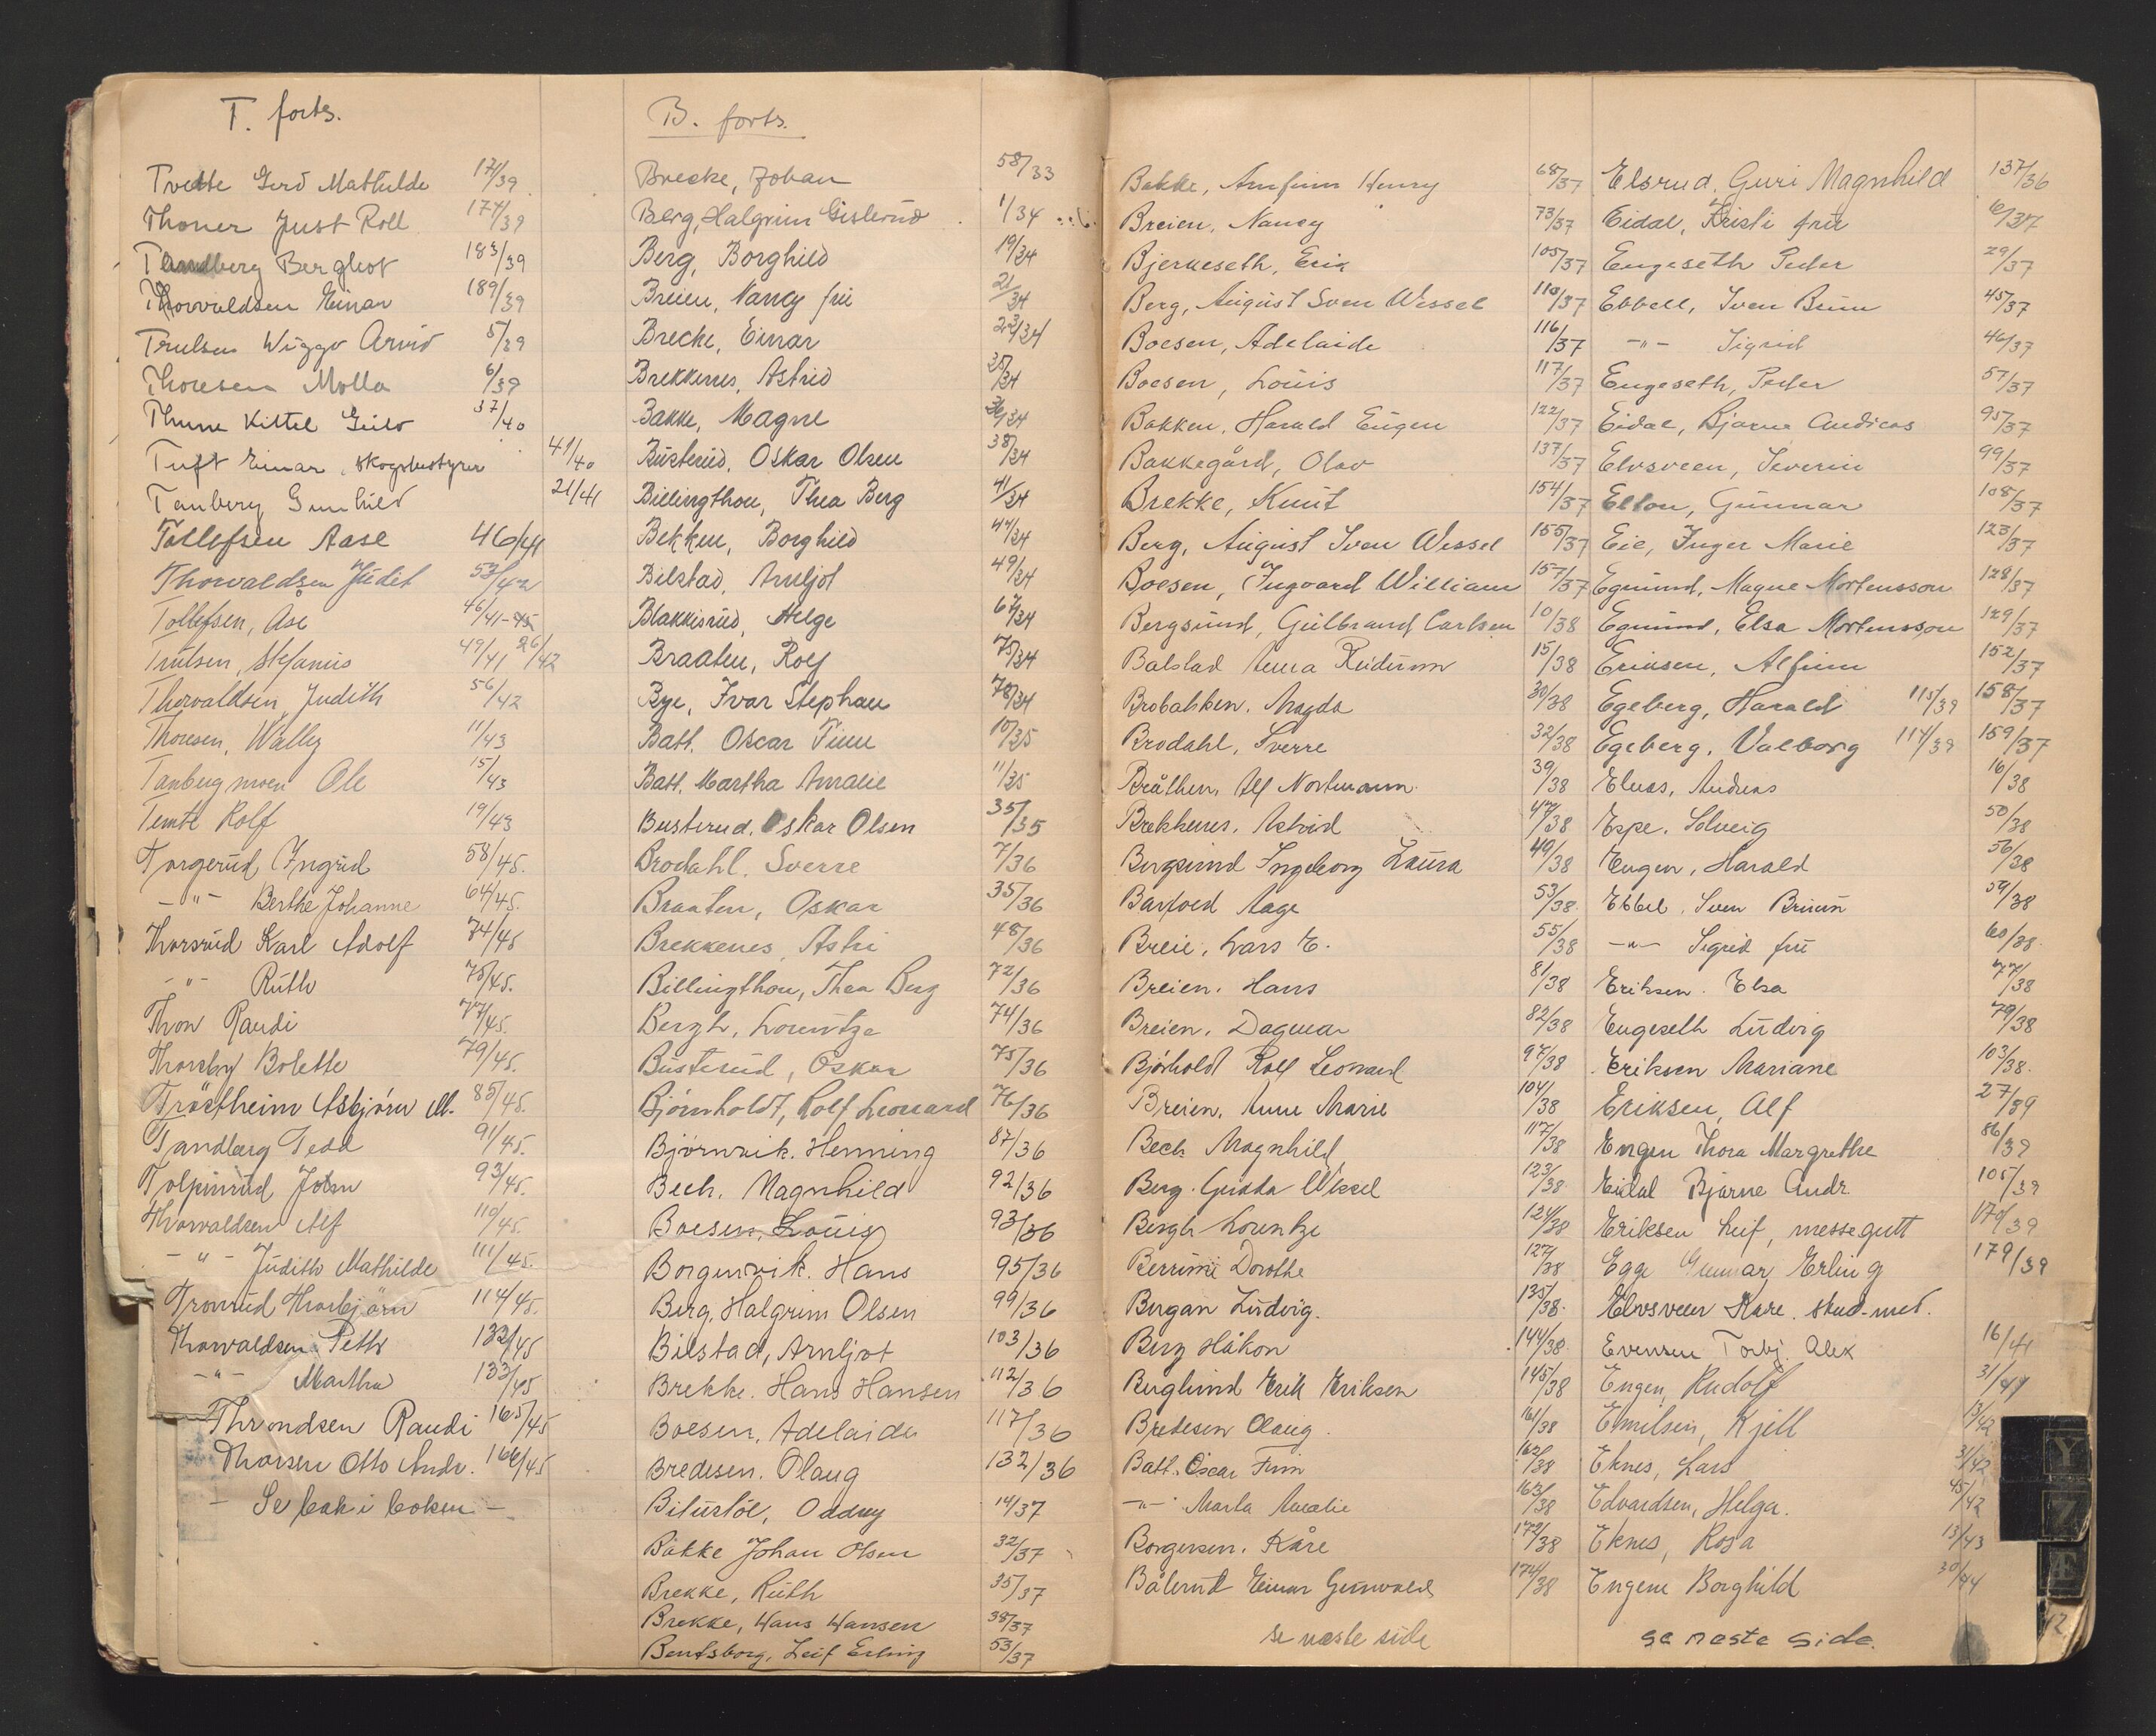 T. forts.
Tvedte Gerd Mathilde 171/39
Thoner Just Roll 174/39
Tandberg Bergliot 183/39
Thorvaldsen Einar 189/39
Trulsen Wiggo Arvid 5/39
Thoresen Molla 6/39
Thune Kittel 37/40
Tuft Einar, skogbestyrer 41/40
Tanberg Gunhild 21/41
Tollefsen Aase 46/41
Thorvaldsen Judit 53/42
Tollefsen, Ase 46/41-45
Trulsen, Stefanus 49/41 26/42
Thorvaldsen, Judith 56/42
Thoresen, Wally 11/43
Tanbergmoen Ole 15/43
Temte Rolf 19/43
Torgerud Ingrid 58/45.
-"- Berthe Johanne 64/45.
Thorsrud Karl Adolf 74/45
-"- Ruth 75/45.
Thon Randi 77/45.
Thorsby Bolette 79/45.
Tröstheim Asbjörn M. 85/45.
Tandberg Tedd 91/45.
Tolpinrud John 93/45.
Thorvaldsen Alf 110/45.
-"- Judith Mathilde 111/45.
Tronrud Thorbjörn 114/45.
Thorvaldsen Petter 132/45
-"- Martha 133/45
Throndsen Randi 165/45
Thorsen Otto Andr. 166/45
- Se bak i boken -
B. forts.
Brecke, Johan 58/33
Berg, Halgrim Gislerud 1/34
Berg, Borghild 19/34
Breien, Nancy fru 21/34
Brecke, Einar 23/34
Brekkenes, Astrid 25/34
Bakke, Magne 36/34
Busterud, Oskar Olsen 38/34
Billingthon, Thea Berg 41/34
Bekken, Borghild 44/34
Bilstad, Arnljot 49/34
Blakkisrud, Helge 67/34
Braaten, Rolf 75/34
Bye, Ivar Stephan 78/34
Batt. Oscar Finn 10/35
Batt. Martha Amalie 11/35
Busterud. Oskar Olsen 35/35
Brodahl. Sverre 7/36
Braaten, Oskar 35/36
Brekkenes, Astri 48/36
Billingthon, Thea Berg 72/36
Bergh, Lorentze 74/36
Busterud, Oskar 75/36
Bjørnholdt, Rolf Leonard 76/36
Bjørnvik. Henning 87/36
Bech. Magnhild 92/36
Boesen, Louis 93/36
Borgenvik. Hans 95/36
Berg, Halgrim Olsen 99/36
Bilstad, Arnljot 103/36
Brekke. Hans Hansen 112/36
Boesen, Adelaide 117/36
Bredesen. Olaug 132/36
Biturtöl, Oddny 14/37
Bakke Johan Olsen 32/37
Brekke, Ruth 35/37
Brekke, Hans Hansen 38/37
Bentsborg, Leif Erling 53/37
Bakke, Arnfinn Henry 68/37
Breien, Nancy 73/37
Bjerkeseth, Erik 105/37
Berg, August Sven Wessel 110/37
Boesen, Adelaide 116/37
Boesen, Louis 117/37
Bakken, Harald Eugen 122/37
Bakkegård, Olav 137/37
Brekke, Knut 154/37
Berg, August Iven Wessel 155/37
Boesen, Ingvard William 157/37
Bergsund, Gulbrand Carlsen 10/38
Balstad Anna Reidunn 15/38
Brobakken. Magda 30/38
Brodahl, Sverre 32/38
Bråthen, Alf Nortmann 39/38
Brekkenes, Astrid 47/38
Bergsund Ingeborg Laura 49/38
Barfoed Aage 53/38
Breie, Lars E. 55/38
Breien. Hans 81/38
Breien. Dagmar 82/38
Bjørholdt Rolf Leonard 97/38
Breien, Anne Marie 104/38
Bech Magnhild 117/38
Berg. Gudda Wessel 123/38
Bergh Lorentze 124/38
Dorothe 127/38
Bergan Ludvig. 135/38.
Berg Håkon 144/38
Berglund Erik Eriksen 145/38
Bredesen Olaug 161/38
Batt. Oscar Finn 162/38
-"- Marta Amalie 163/38
Borgersen. Kåre 172/38
Bålerud Einar Gunvald 174/38
se næste side
Elsrud, Guri Magnhild 137/36
Eidal, Kristi fru 6/37
Engeseth Peder 29/37
Ebbell, Sven Bruun 45/37
-"- Sigrid 46/37
Engeseth, Peder 57/37
Eidal, Bjarne Andreas 95/37
Elvsveen, Severin 99/37
Elton, Gunnar 108/37
Eie, Inger Marie 123/37
Egmund, Magne Mortensson 128/37
Egmund, Elsa Mortensson 129/37
Eriksen, Alfinn 152/37
Egeberg, Harald 115/39 158/37
Egeberg, Valborg 114/39 159/37
Elnæs, Andreas 16/38
Espe. Solveig 50/38
Engen, Harald 56/38
Ebbel, Sven Bruun 59/38
-"- Sigrid fru 60/38.
Eriksen. Elsa 77/38
Engeseth Ludvig 79/38
Eriksen Mariane 103/38.
Eriksen, Alf 27/39
Engen Thora Margrethe 86/39
Eidal Bjarne Andr. 105/39
Eriksen Leif, messegutt 170/39
Egge Gunnar Erling 179/39
Elvsveen Kåre. stud-med.
Evensen Torbj. Alex 16/41
Engen, Rudolf 31/41
Emilsen, Kjell 13/42
Eknes, Lars 31/42
Edvardsen, Helga. 45/42
Eknes, Rosa 13/43
Engene Borghild 30/44
se neste side.
Y
Z
Æ